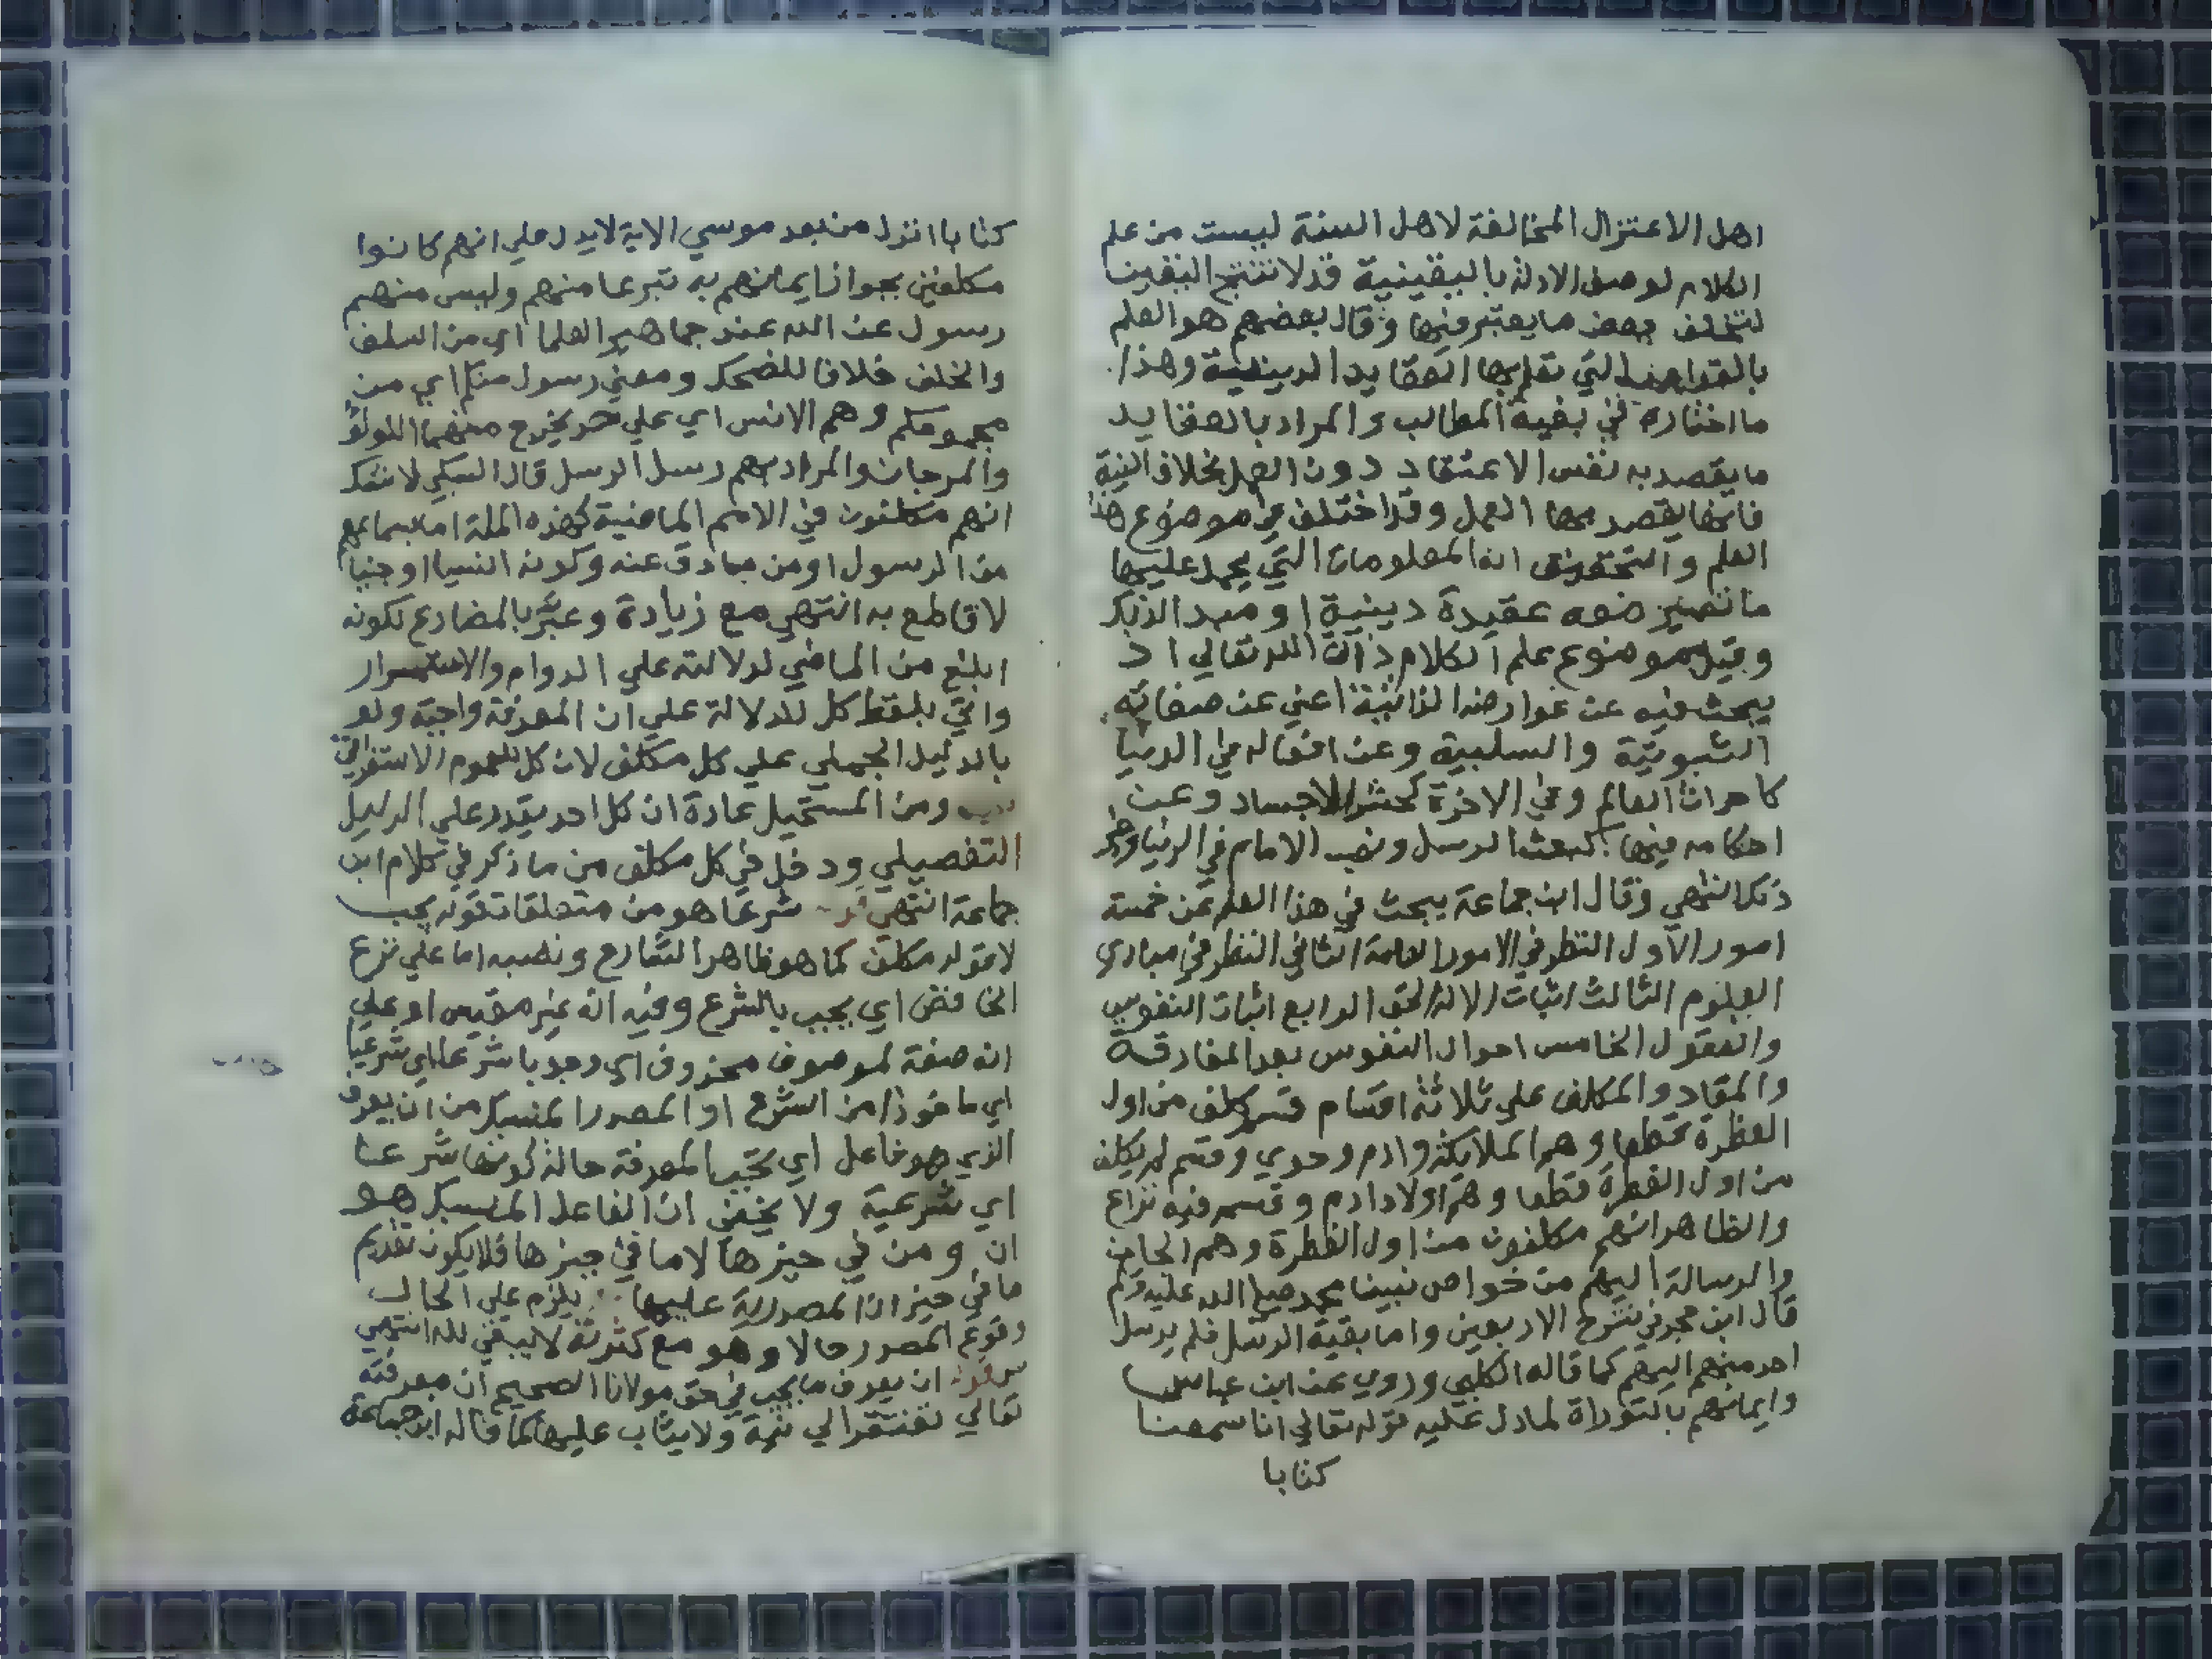 اهل الاعتزال المخالفة لاهل السنة ليست من علم
الكلام لوصف الادلة باليقينية قد لا تنتج اليقين
لتخلف بعض ما يعتبر فيها وقال بعضهم هو العلم
بالقواعد التي تعلم بها العقايد الدينية وهذا
ما اختاره في بغية المطالب والمراد بالعقايد
ما يقصد به نفس الاعتقاد دون العمل بخلاف النية
فانها يقصد بها العمل وقد اختلف في موضوع هذا
العلم والتحقيق انه المعلومات التي يحمل عليها
ما تصير معه عقيدة دينية او مبدا لذلك
وقيل موضوع علم الكلام ذات الله تعالي اذ
يبحث فيه عن عوارضه الذاتية اعني عن صفاته
الثبوتية والسلبية وعن افعاله في الدنيا
كاحداث العالم وفي الاخرة كحشر الاجساد وعن
احكامه فيها كبعث الرسل ونصب الامام في الدنيا
ذلك انتهي وقال ابن جماعة يبحث في هذا العلم عن خمسة
امور الاول النظر في الامور العامة الثاني النظر في مبادي
العلوم الثالث اثبات الاله الحق الرابع اثبات النفوس
والعقول الخامس احوال النفوس بعد المفارقة
والمعاد والمكلف علي ثلاثة اقسام قسم كلف من اول
الفطرة قطعا وهم الملايكة وادم وحوي وقسم لم يكلف
من اول الفطرة قطعا وهم اولاد ادم وقسم فيه نزاع
والظاهر انهم مكلفون من اول الفطرة وهم الجان
والرسالة اليهم من خواص نبينا محمد صلي الله عليه وسلم
قال ابن حجر في شرح الاربعين واما بقية الرسل فلم يرسل
احد منهم اليهم كما قاله الكلبي وروي عن ابن عباس
وايمانهم بالتوراة لما دل عليه قوله تعالي انا سمعنا
كتابا
كتابا انزل من بعد موسي الاية لا يدل علي انهم كانوا
مكلفين بجواز ايمانهم به تبرعا منهم وليس منهم
رسول عن الله عند جماهير العلما اي من السلف
والخلف خلافا للضحك ومعني رسول منكم اي من
مجموعكم وهم الانس اي علي حد يخرج منهما اللولو
والمرجان والمراد بهم رسل الرسل قال السبكي لا شك
انهم مكلفون في الامم الماضية كهذه الملة اما بسماعهم
من الرسول او من صادق عنه وكونه انسيا او جنيا
لا قاطع به انتهي مع زيادة وعبر بالمضارع لكونه
ابلغ من الماضي لدلالته علي الدوام والاستمرار
واتي بلفظ كل للدلالة علي ان المعرفة واجبة ولو
بالدليل الجملي علي كل مكلف لان كل للعموم الاستغراقي
ومن المستحيل عادة ان كل احد يقدر علي الدليل
التفصيلي ودخل في كل مكلف من ما ذكر في كلام ابن
جماعة انتهي شرعا هو من متعلقات قوله يجب
لا قوله مكلف كما هو ظاهر الشارح ونصبه اما علي نزع
الخافض اي يجب بالشرع وفيه انه غير مقيس او علي
انه صفة لموصوف محذوف اي وجوبا شرعا اي شرعيا
اي ماخوذا من الشرع او المصدر المنسبك من ان يعرف
الذي هو فاعل اي تجب المعرفة حالة كونها شرعا
اي شرعية ولا يخفي ان الفاعل المنسبك هو
ان ومن في حيزها لا ما في حيزها فلا يكون تقديم
ما في حيز ان المصدرية عليها يلزم علي الحال
وقوع المصدر حالا وهو مع كثرته لا ينبغي لله انتهي
ان يعرف ما يجب في حق مولانا الصحيح ان معرفته
تعالي تفتقر الي نية ولا يثاب عليها كما قاله ابن جماعة